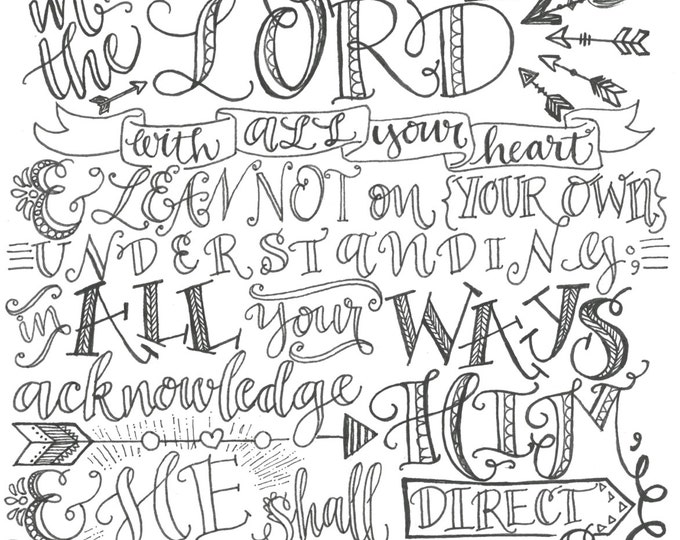 in
the LORD
with ALL your heart
& LEAN NOT on {YOUR OWN}
UNDERSTANDING;
in ALL your WAYS
acknowledge HIM,
& HE shall DIRECT